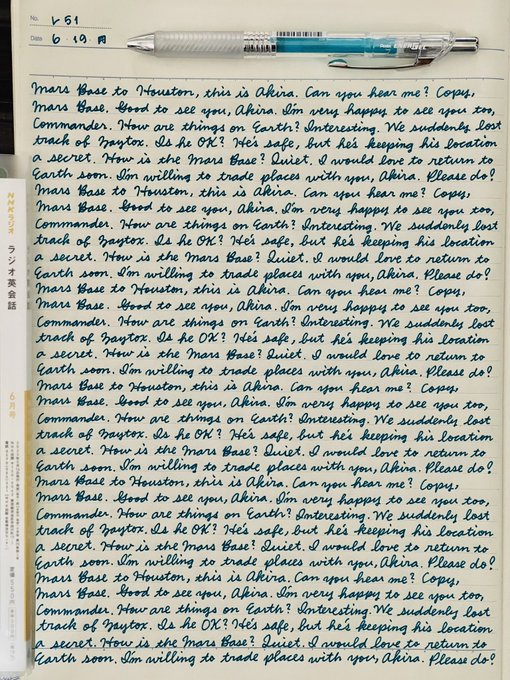 No. L51
Date 6・19・月
Pentel ENERGEL
Mars Base to Houston, this is Akira. Can you hear me? Copy,
Mars Base. Good to see you, Akira. I'm very happy to see you too,
Commander. How are things on Earth? Interesting. We suddenly lost
track of Zaytox. Is he OK? He's safe, but he's keeping his location
a secret. How is the Mars Base? Quiet. I would love to return to
Earth soon. I'm willing to trade places with you, Akira. Please do!
Mars Base to Houston, this is Akira. Can you hear me? Copy,
Mars Base. Good to see you, Akira. I'm very happy to see you too,
Commander. How are things on Earth? Interesting. We suddenly lost
track of Zaytox. Is he OK? He's safe, but he's keeping his location
a secret. How is the Mars Base? Quiet. I would love to return to
Earth soon. I'm willing to trade places with you, Akira. Please do!
Mars Base to Houston, this is Akira. Can you hear me? Copy,
Mars Base. Good to see you, Akira. I'm very happy to see you too,
Commander. How are things on Earth? Interesting. We suddenly lost
track of Zaytox. Is he OK? He's safe, but he's keeping his location
a secret. How is the Mars Base? Quiet. I would love to return to
Earth soon. I'm willing to trade places with you, Akira. Please do!
Mars Base to Houston, this is Akira. Can you hear me? Copy,
Mars Base. Good to see you, Akira. I'm very happy to see you too,
Commander. How are things on Earth? Interesting. We suddenly lost
track of Zaytox. Is he OK? He's safe, but he's keeping his location
a secret. How is the Mars Base? Quiet. I would love to return to
Earth soon. I'm willing to trade places with you, Akira. Please do!
Mars Base to Houston, this is Akira. Can you hear me? Copy,
Mars Base. Good to see you, Akira. I'm very happy to see you too,
Commander. How are things on Earth? Interesting. We suddenly lost
track of Zaytox. Is he OK? He's safe, but he's keeping his location
a secret. How is the Mars Base? Quiet. I would love to return to
Earth soon. I'm willing to trade places with you, Akira. Please do!
Mars Base to Houston, this is Akira. Can you hear me? Copy,
Mars Base. Good to see you, Akira. I'm very happy to see you too,
Commander. How are things on Earth? Interesting. We suddenly lost
track of Zaytox. Is he OK? He's safe, but he's keeping his location
a secret. How is the Mars Base? Quiet. I would love to return to
Earth soon. I'm willing to trade places with you, Akira. Please do!
NHKラジオ
ラジオ英会話
6月号
定価550円